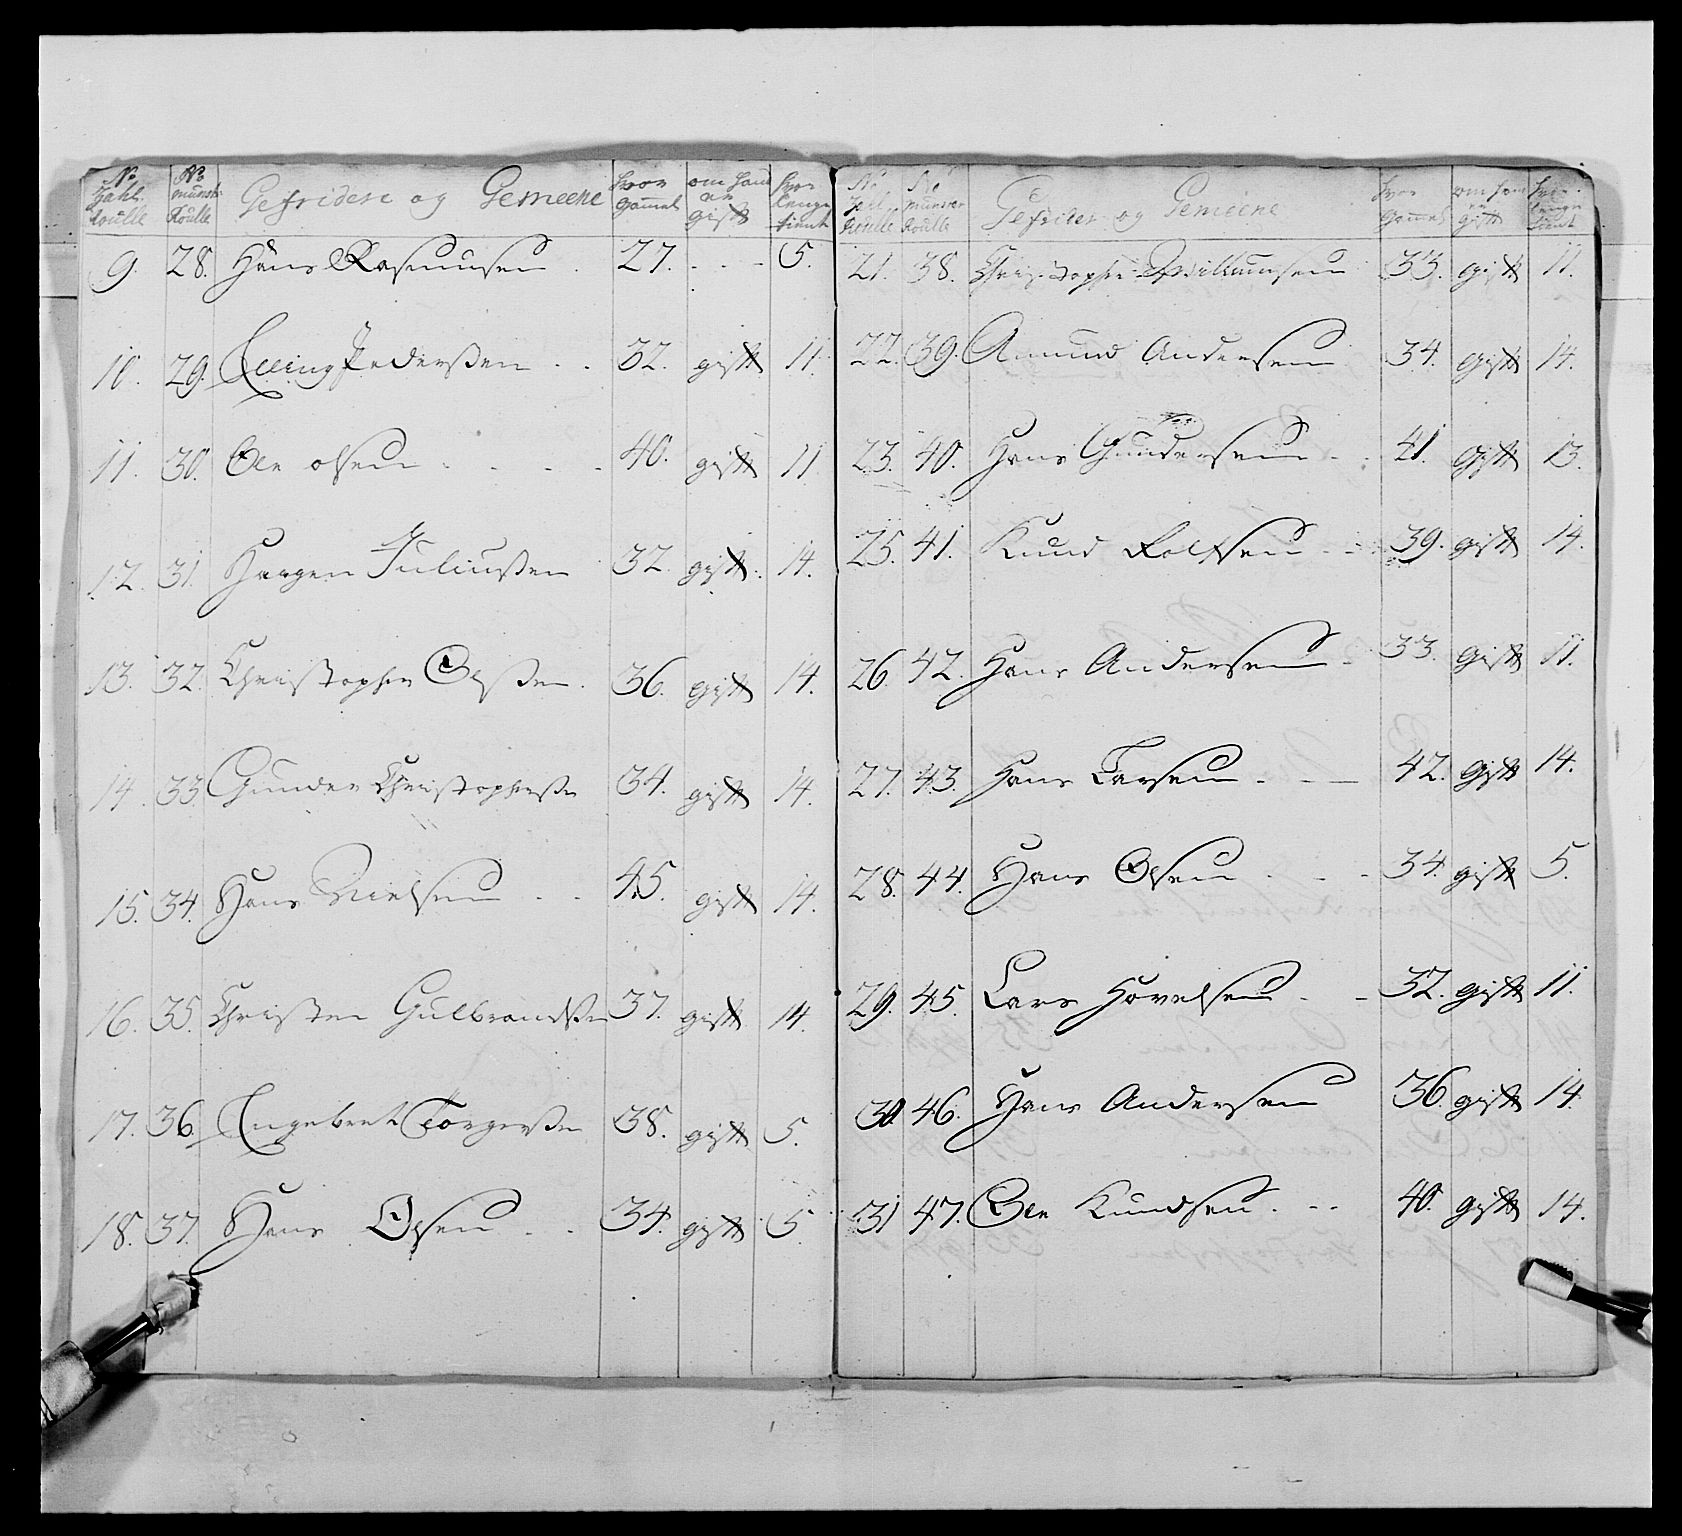 No Zahl Roulle | No munster Roulle | Gefridere og Gemeene | hvor gammel | om hand er gift | hvor lenge tient
9. 28. Hans Rasmusen . 27. - - - 5.
10. 29. Elling Pederßen . . 32. gift 11.
11. 30. Ole olsen . . . . 40. gift 11
12. 31. Hargen Juliußen 32 gift. 14.
13. 32. Christopher Olßen. 36. gift 14.
14. 33. Gunder Christopherße 34. gift 14.
15. 34. Hans Nielsen - - 45. gift 14.
16. 35. Christen Gulbrandße 37. gift 14.
17. 36. Engebret Torgerße 38. gift 5.
18. 37. Hans Olsen - - 34. gift 5.
No Zahl Roulle | No munster Roulle | Gefrider og Gemeene | hvor gammel | om hand er gift | hvor lenge tient
21. 38. Christopher Willumsen 33. gift 11.
22. 39. Amund Andersen 34. gift 14.
23. 40. Hans Gundersen - . 41. gift 13.
25. 41. Knud Rolfsen - - 39. gift 14.
26. 42. Hans Andersen - 33. gift 11.
27. 43. Hans Larsen - — 42. gift 14.
28. 44. Hans Olsen . - - 34. gift 5.
29. 45. Lars Hovelsen - - 32. gift 11.
30. 46. Hans Andersen 36. gift 14.
31 47. Ole Knudsen . -- 40. gift 14.